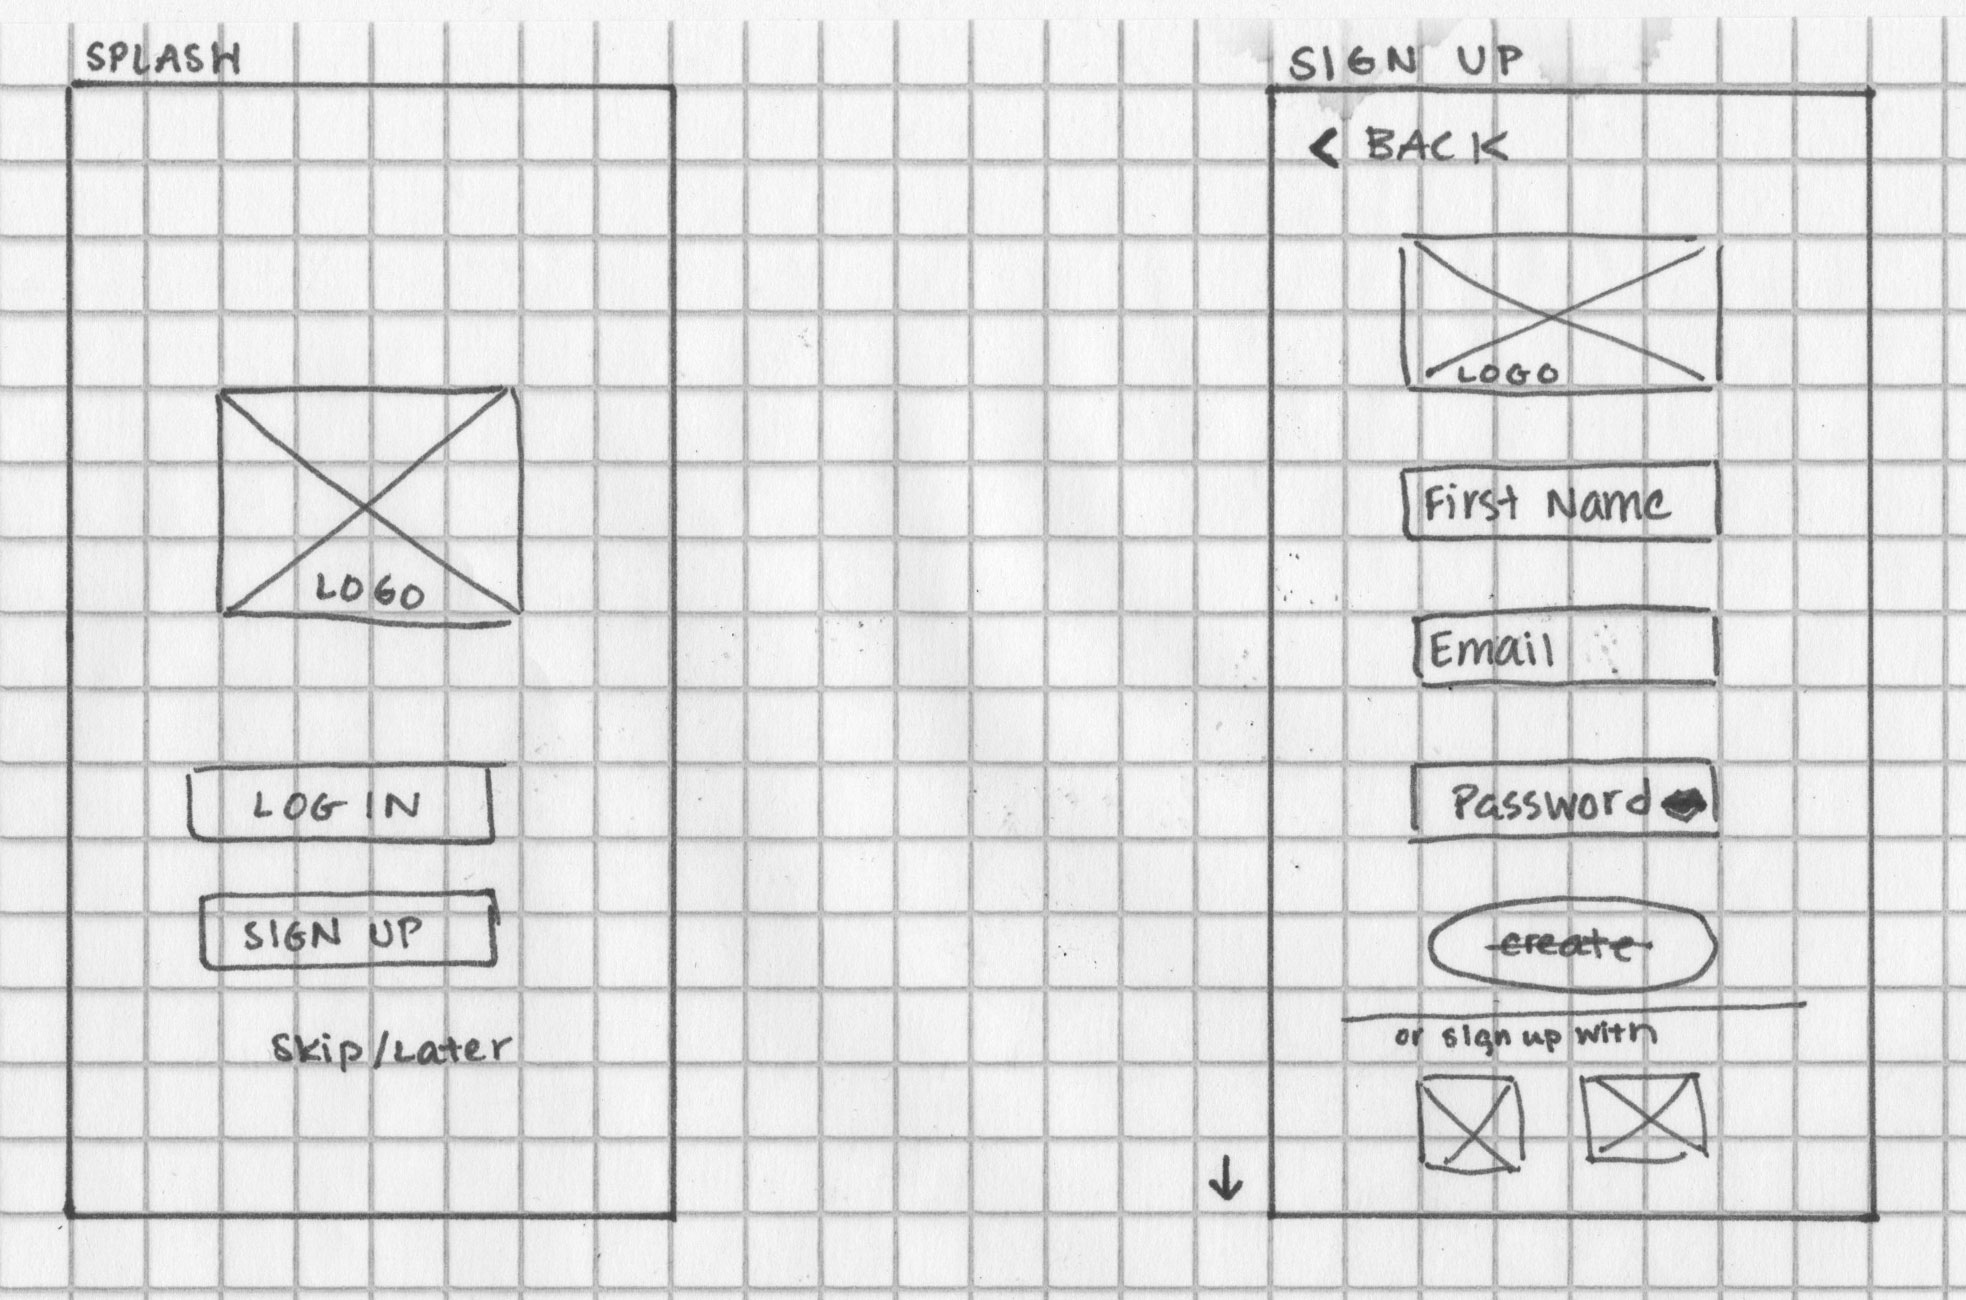 SPLASH
LOGO
LOG IN
SIGN UP
Skip/Later
SIGN UP
< BACK
LOGO
First Name
Email
Password
create
or sign up with